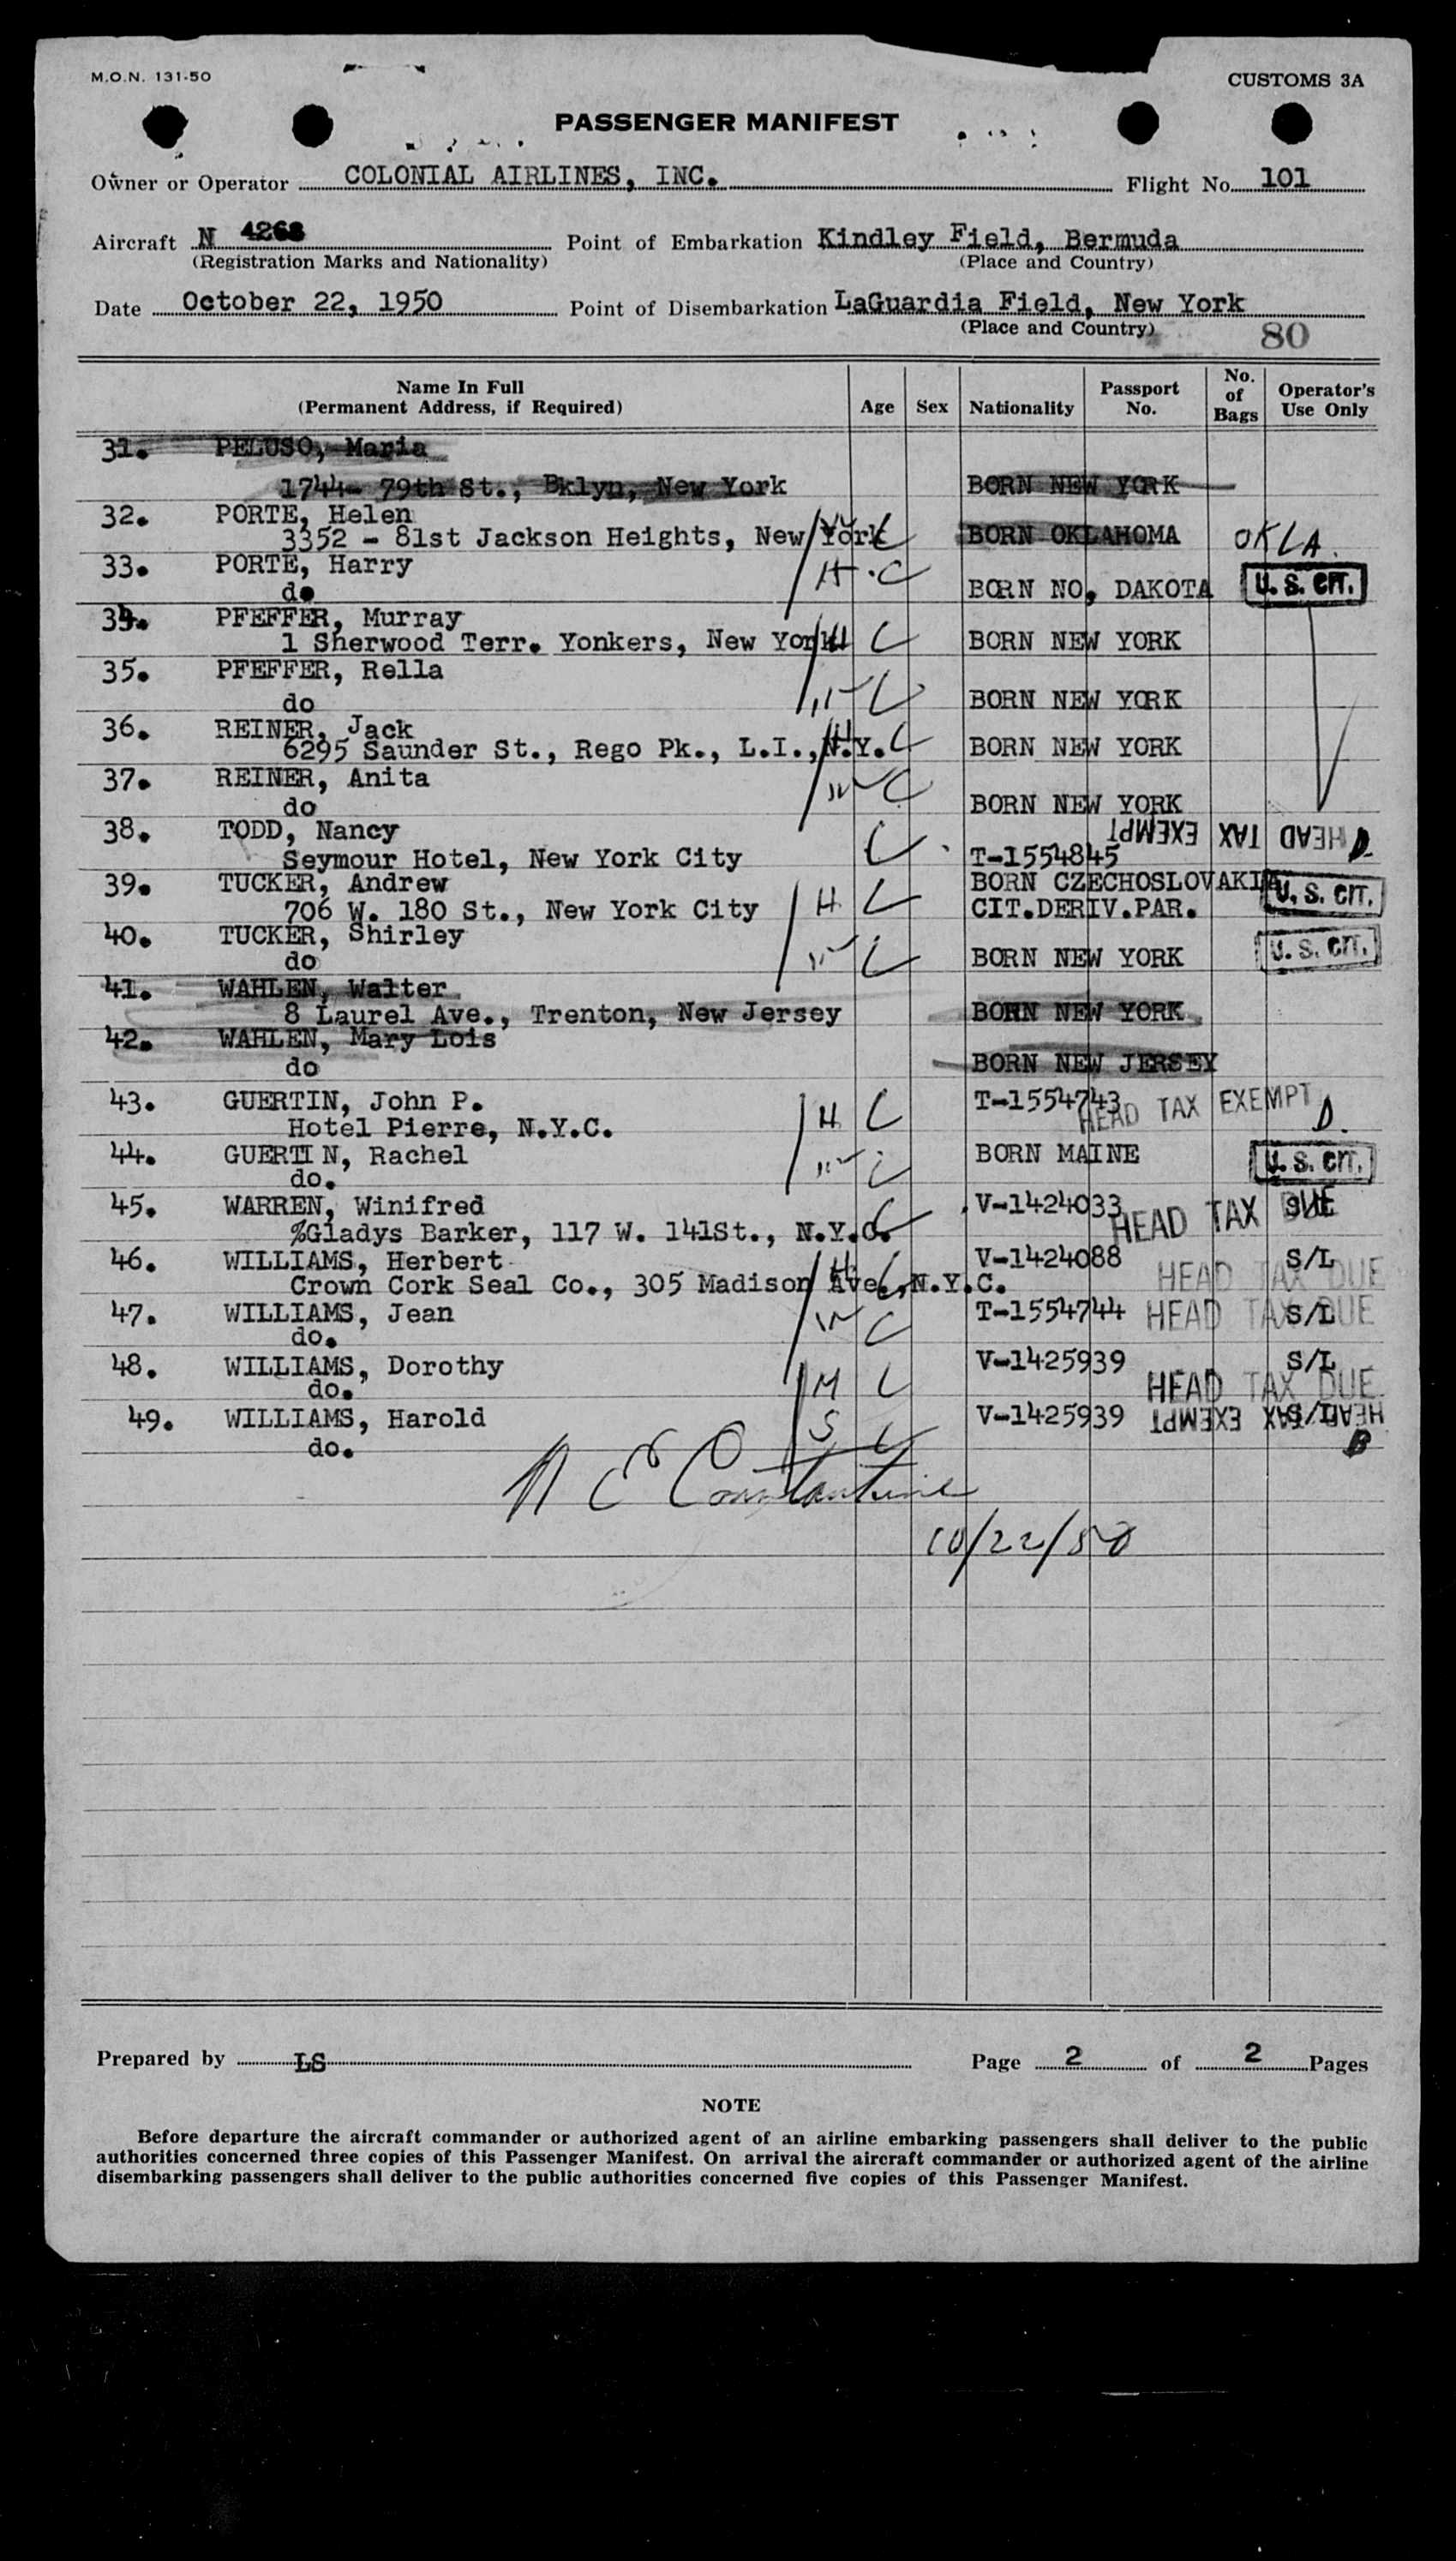 M.O.N. 131-50
CUSTOMS 3A
PASSENGER MANIFEST
Owner or Operator COLONIAL AIRLINES, INC. Flight No. 101
Aircraft N 4268 Point of Embarkation Kindley Field, Bermuda
(Registration Marks and Nationality) (Place and Country)
Date October 22, 1950 Point of Disembarkation LaGuardia Field, New York
(Place and Country)
80
Name In Full (Permanent Address, if Required) Age Sex Nationality Passport No. No. of Bags Operator's Use Only
31. PELUSO, Maria
1744- 79th St., Bklyn, New York BORN NEW YORK
32. PORTE, Helen
3352 - 81st Jackson Heights, New York C BORN OKLAHOMA OKLA.
33. PORTE, Harry H C
do BORN NO. DAKOTA U. S. CIT.
34. PFEFFER, Murray
1 Sherwood Terr. Yonkers, New York H C BORN NEW YORK
35. PFEFFER, Rella
do W C BORN NEW YORK
36. REINER, Jack
6295 Saunder St., Rego Pk., L.I., N.Y. H C BORN NEW YORK
37. REINER, Anita W C
do BORN NEW YORK
38. TODD, Nancy HEAD TAX EXEMPT
Seymour Hotel, New York City C T-1554845
39. TUCKER, Andrew BORN CZECHOSLOVAKIA U. S. CIT.
706 W. 180 St., New York City H C CIT.DERIV.PAR.
40. TUCKER, Shirley
do W C BORN NEW YORK U. S. CIT.
41. WAHLEN, Walter
8 Laurel Ave., Trenton, New Jersey BORN NEW YORK
42. WAHLEN, Mary Lois
do BORN NEW JERSEY
43. GUERTIN, John P. H C T-1554743 HEAD TAX EXEMPT D.
Hotel Pierre, N.Y.C.
44. GUERTIN, Rachel W C BORN MAINE U. S. CIT.
do.
45. WARREN, Winifred C V-1424033 HEAD TAX DUE
%Gladys Barker, 117 W. 141St., N.Y.C.
46. WILLIAMS, Herbert H C V-1424088 S/L HEAD TAX DUE
Crown Cork Seal Co., 305 Madison Ave., N.Y.C.
47. WILLIAMS, Jean W C T-1554744 HEAD TAX DUE S/L
do.
48. WILLIAMS, Dorothy V-1425939 S/L
do. M C HEAD TAX DUE
49. WILLIAMS, Harold S C V-1425939 HEAD TAX EXEMPT S/L
do. B
N E Constantine
10/22/50
Prepared by LS Page 2 of 2 Pages
NOTE
Before departure the aircraft commander or authorized agent of an airline embarking passengers shall deliver to the public
authorities concerned three copies of this Passenger Manifest. On arrival the aircraft commander or authorized agent of the airline
disembarking passengers shall deliver to the public authorities concerned five copies of this Passenger Manifest.